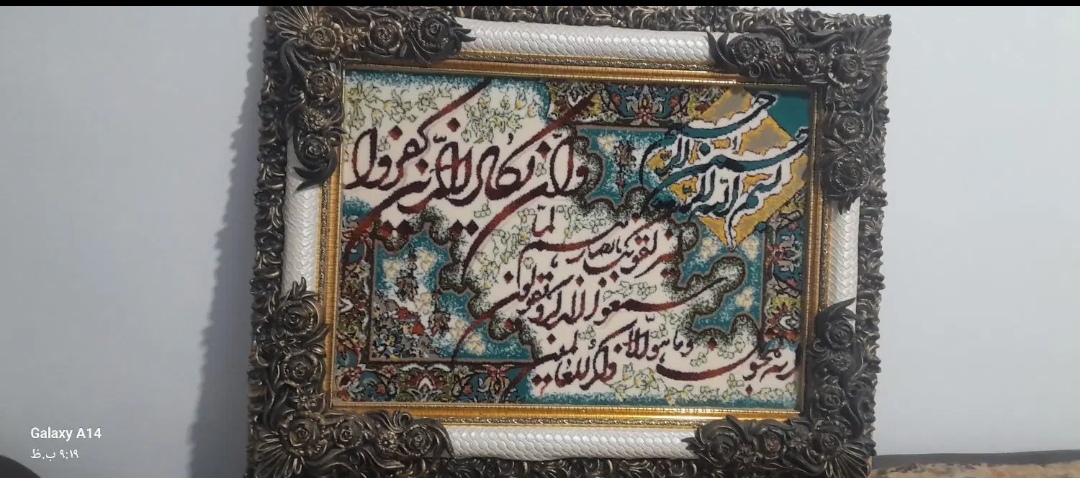 بسم الله الرحمن الرحیم
وان یکاد الذین کفروا
لیزلقونک بابصارهم لما
سمعوا الذکر و یقولون
انه لمجنون وما هو الا
ذکر للعالمین
Galaxy A14
۹:۱۹ ب.ظ